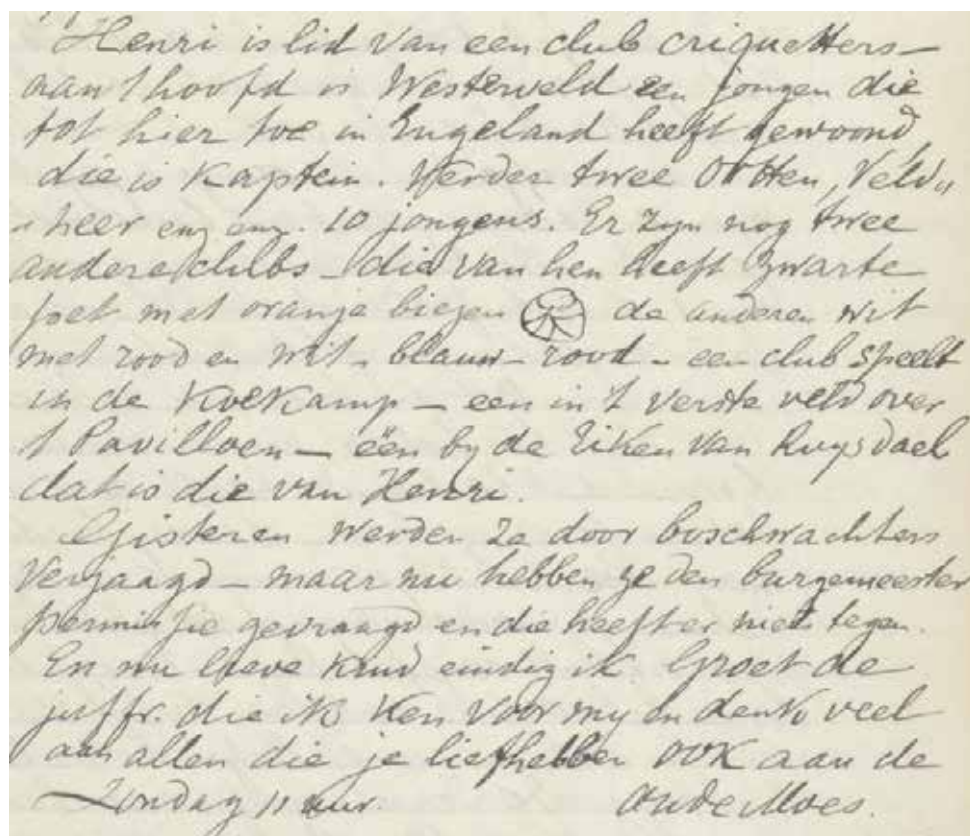 Henri is lid van een club criquetters –
aan 't hoofd is Westerveld een jongen die
tot hier toe in Engeland heeft gewoond,
die is Kaptein. Verder twee Otten, Veld„
„heer enz enz. 10 jongens. Er zyn nog twee
andere clubs – die van hen heeft zwarte
pet met oranje biezen de anderen wit
met rood en wit - blauw - rood - een club speelt
in de Koekamp – een in 't verste veld over
't Pavilloen – één by de Eiken van Ruysdael
dat is die van Henri.
Gisteren werden ze door boschwachters
verjaagd – maar nu hebben ze den burgemeester
permissie gevraagd en die heeft er niets tegen.
En nu lieve kind eindig ik. Groet de
juffr. die ik ken voor my en denk veel
aan allen die je liefhebben OOK aan de
Zondag 11 uur. oude Moes.